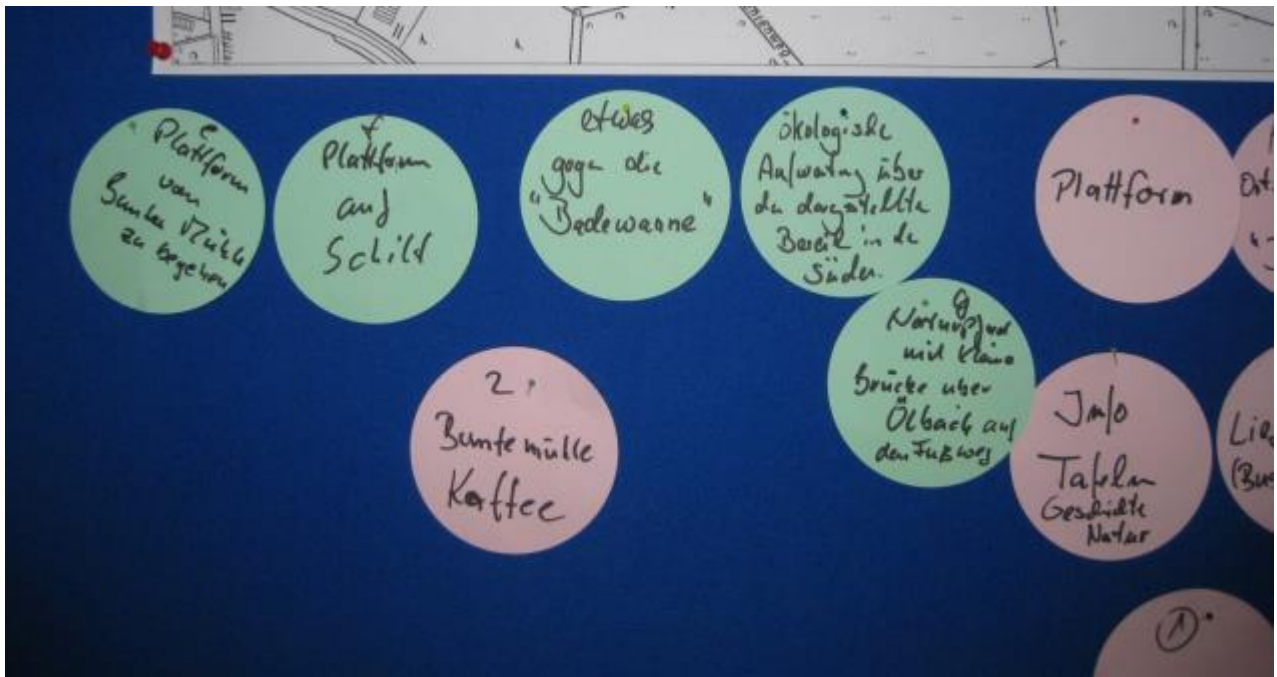 MIENWEG
e
Plattform
von
Bunte Mühle
zu begehen
f
Plattform
auf
Schilf
etwas
gegen die
"Badewanne"
ökologische
Aufwertung über
den dargestellte
Bereich in de
Süden.
g
mit kleine
Brücke über
Ölbach auf
den Fußweg
Plattform
Ort
2.
Buntemülle
Kaffee
Info
Tafeln
Geschichte
Natur
Lie
(Bu
1